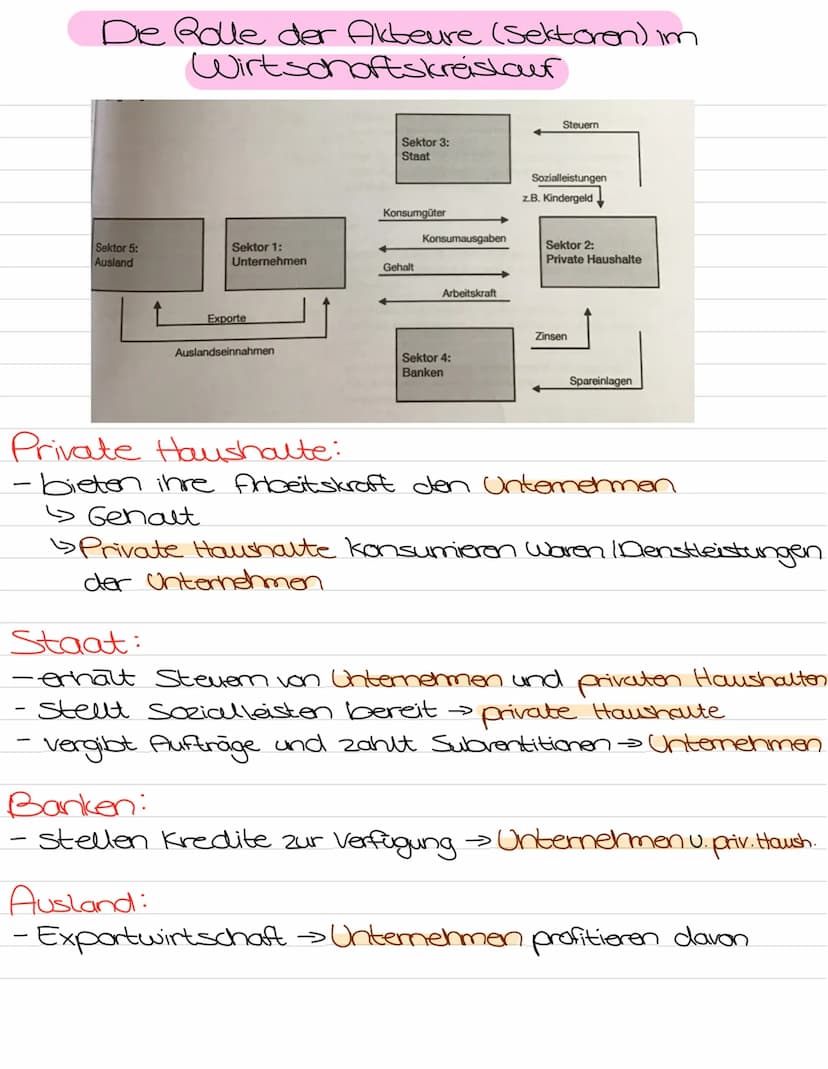 Die Rolle der Akteure (Sektoren) im
Wirtschaftskreislauf
Sektor 3:
Staat
Steuern
Sozialleistungen
z.B. Kindergeld
Konsumgüter
Konsumausgaben
Gehalt
Arbeitskraft
Sektor 5:
Ausland
Sektor 1:
Unternehmen
Sektor 2:
Private Haushalte
Exporte
Auslandseinnahmen
Sektor 4:
Banken
Zinsen
Spareinlagen
Private Haushalte:
- bieten ihre Arbeitskraft den Unternehmen
↳ Gehalt
↳ Private Haushalte konsumieren Waren/Dienstleistungen
der Unternehmen
Staat:
- erhält Steuern von Unternehmen und privaten Haushalten
- Stellt Sozialleisten bereit → private Haushalte
- vergibt Aufträge und zahlt Subventitionen → Unternehmen
Banken:
- stellen Kredite zur Verfügung → Unternehmen u. priv. Haush.
Ausland:
- Exportwirtschaft → Unternehmen profitieren davon